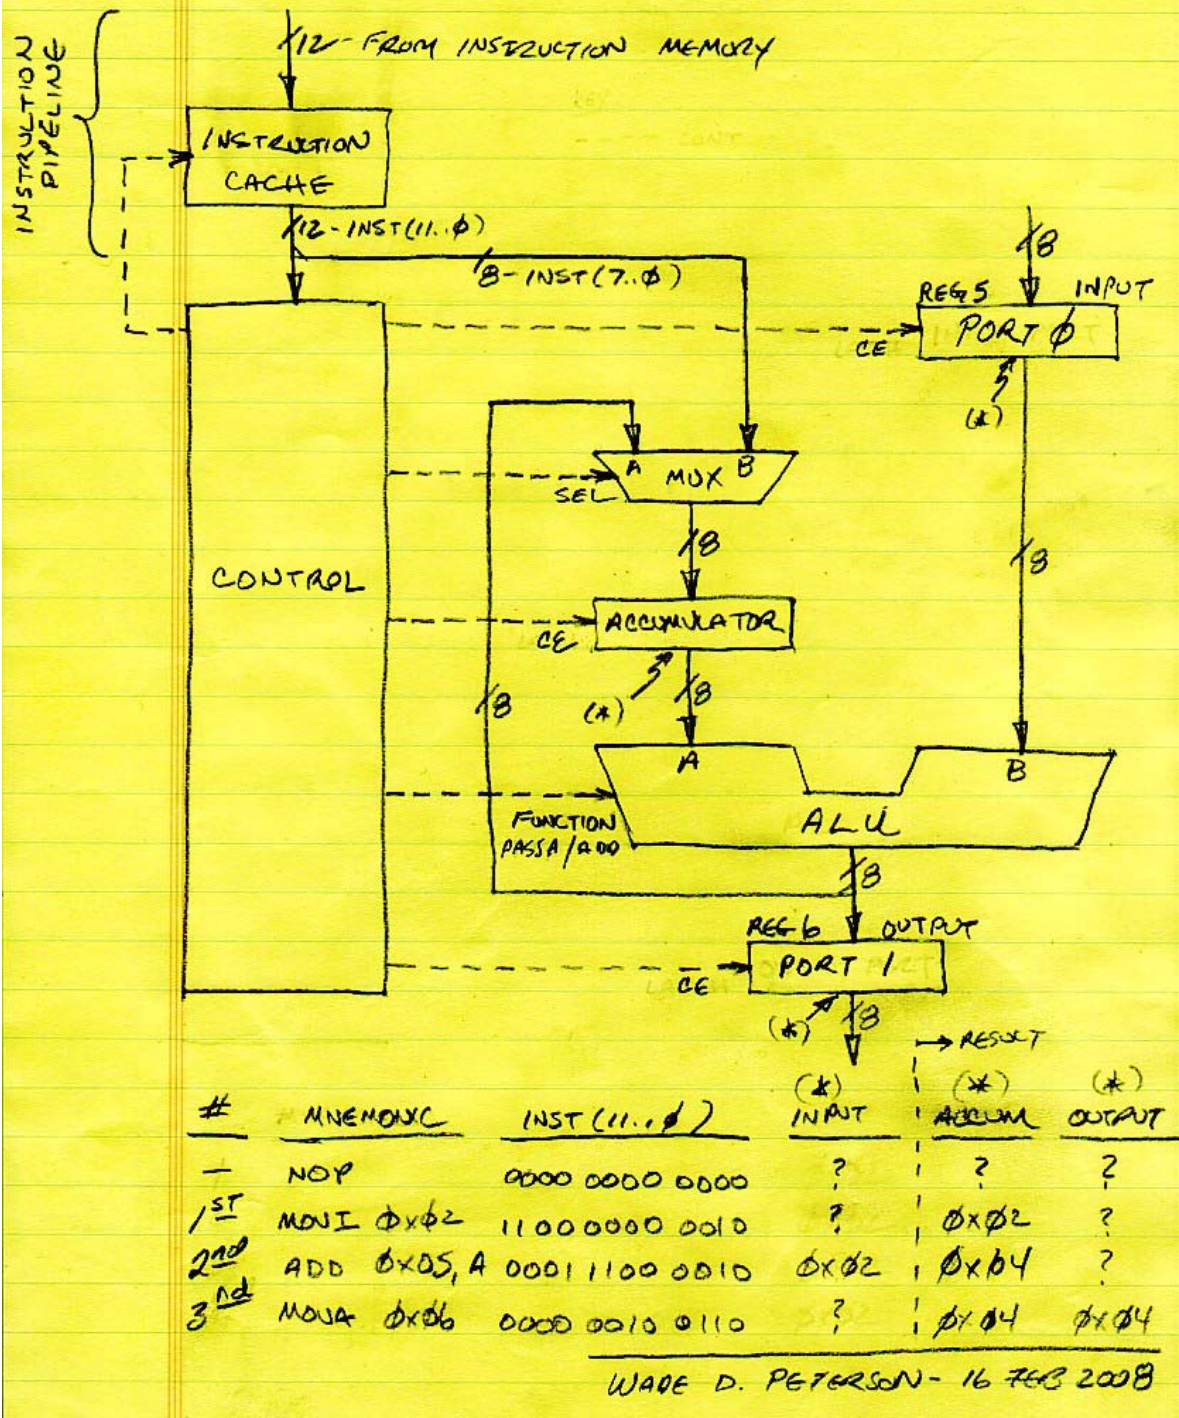 12-FROM INSTRUCTION MEMORY
INSTRUCTION
PIPELINE
INSTRUCTION
CACHE
12-INST(11..0)
8-INST(7..0)
8
REG 5 INPUT
PORT 0
CE
(*)
A MUX B
SEL
8
8
CONTROL
ACCUMULATOR
CE
(*)
8
8
A B
ALU
FUNCTION
PASSA/ADD
8
REG 6 OUTPUT
PORT 1
CE
(*)
8
RESULT
(*) (*) (*)
# MNEMONIC INST (11..0) INPUT ACCUM OUTPUT
— NOP 0000 0000 0000 ? ? ?
1ST MOVI 0x02 1100 0000 0010 ? 0x02 ?
2nd ADD 0x05, A 0001 1100 0010 0x02 0x04 ?
3nd MOVA 0x06 0000 0010 0110 ? 0x04 0x04
WADE D. PETERSON - 16 FEB 2008